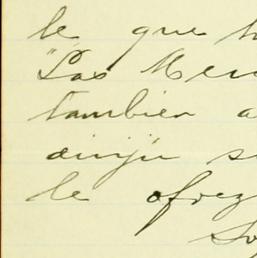 le que
"Las
tambien a
dirijir
le ofrez